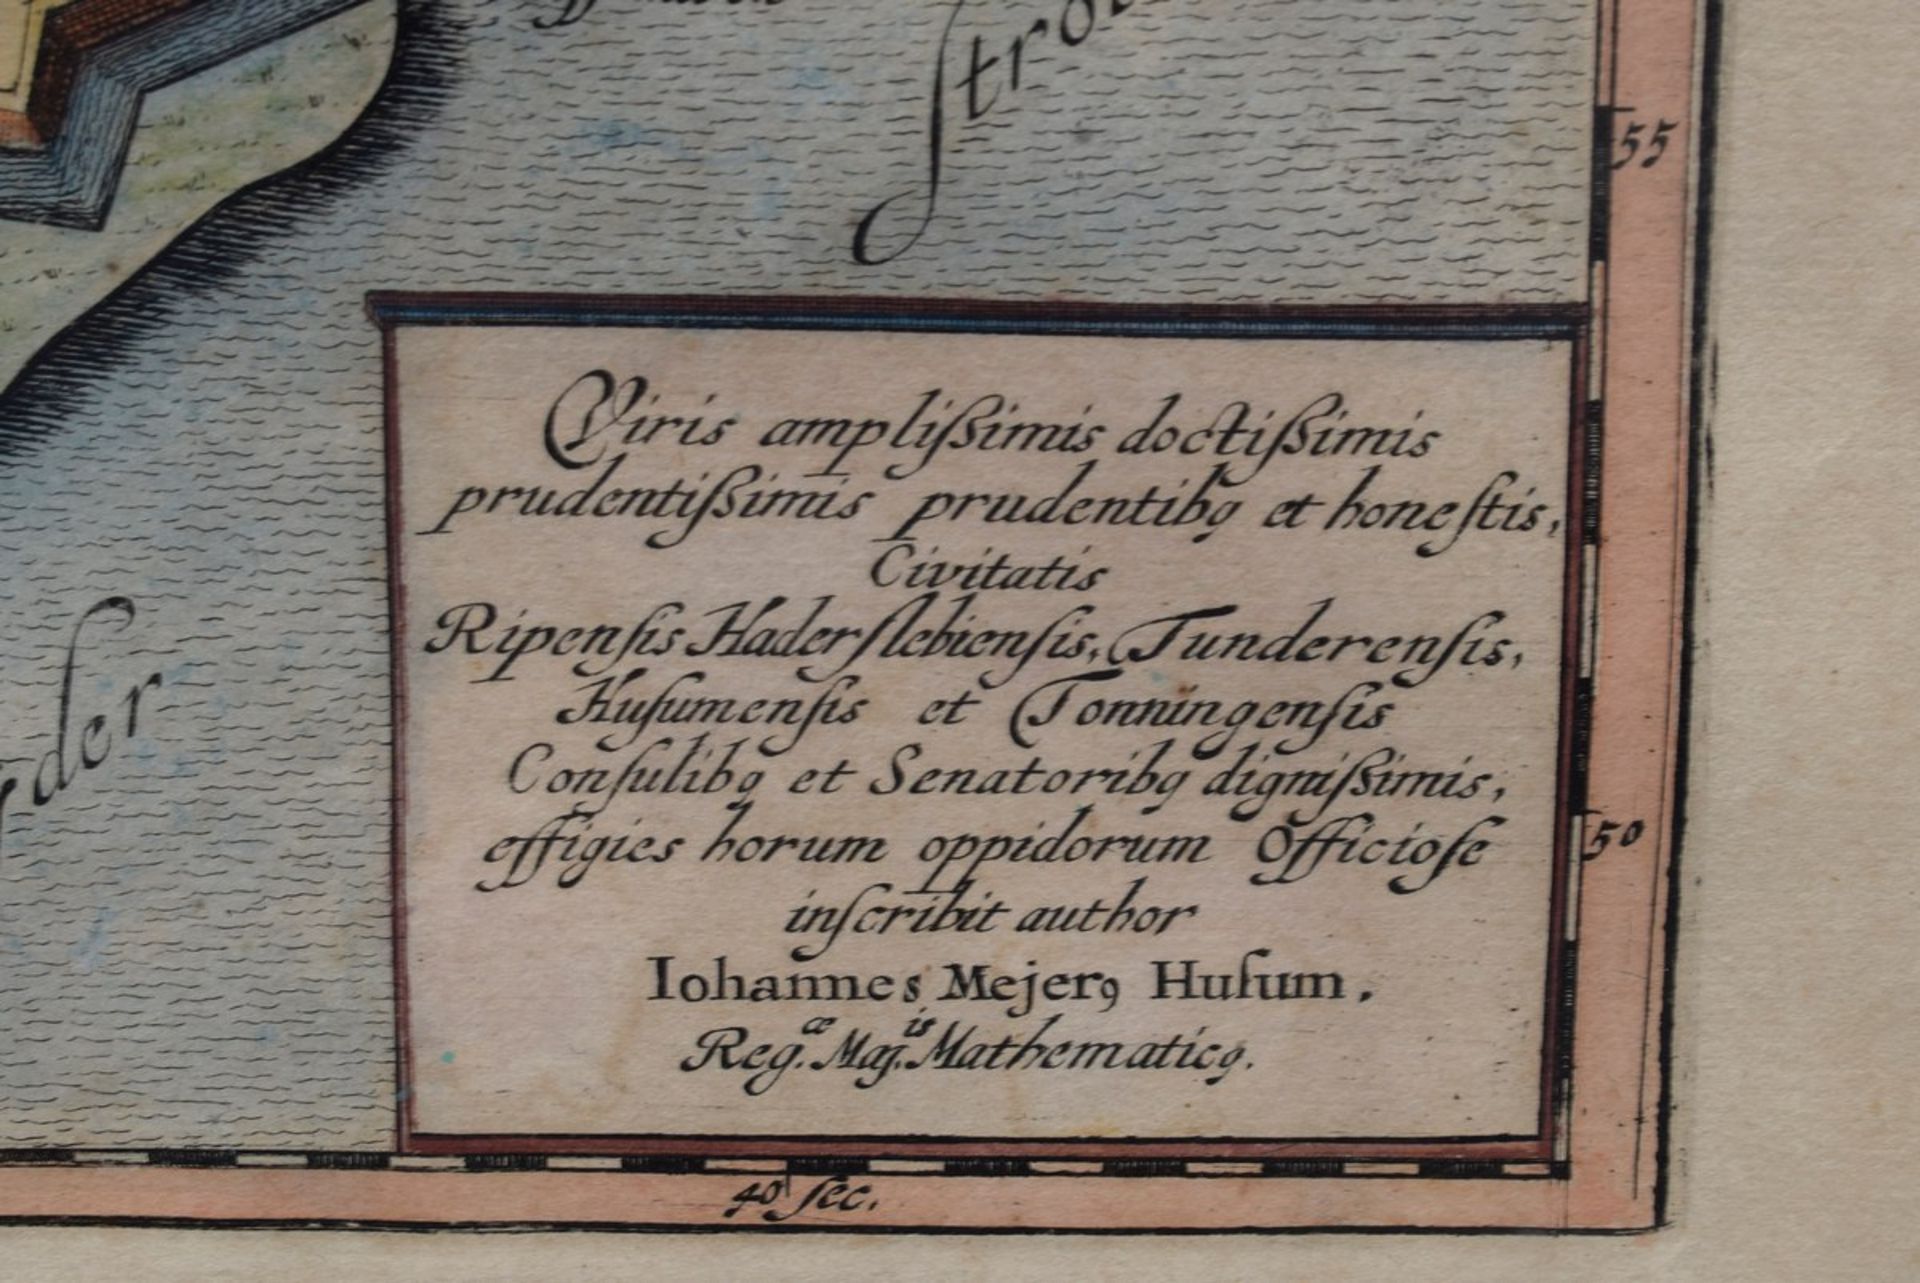 Stro
55
Viris ampliſsimis doctiſsimis
prudentiſsimis prudentibꝰ et honeſtis,
Civitatis
Ripenſis Haderſlebienſis, Tunderenſis,
Huſumenſis et Tonningenſis
Conſulibꝰ et Senatoribꝰ digniſsimis,
effigies horum oppidorum Officioſe
inſcribit author
Iohannes Mejerꝰ Huſum.
Reg.æ Maj.is Mathematicꝰ.
der
50
40 ſec.